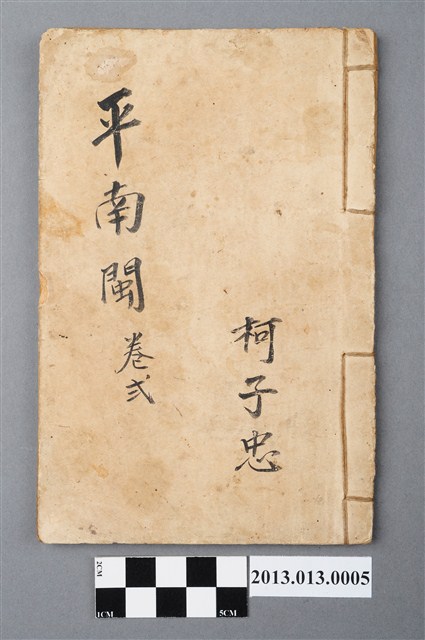 柯子忠
平南閩
卷弍
2CM
1CM
5CM
2013.013.0005